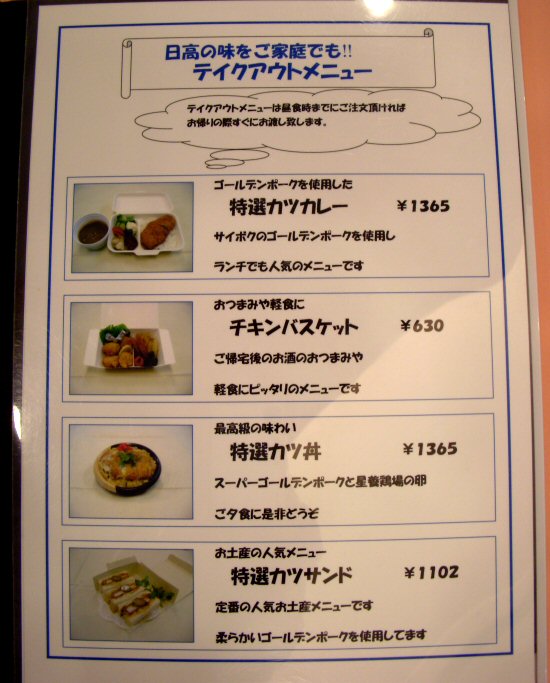 日高の味をご家庭でも!!
テイクアウトメニュー
テイクアウトメニューは昼食時までにご注文頂ければ
お帰りの際すぐにお渡し致します。
ゴールデンポークを使用した
特選カツカレー ￥1365
サイボクのゴールデンポークを使用し
ランチでも人気のメニューです
おつまみや軽食に
チキンバスケット ￥630
ご帰宅後のお酒のおつまみや
軽食にピッタリのメニューです
最高級の味わい
特選カツ丼 ￥1365
スーパーゴールデンポークと星養鶏場の卵
ご夕食に是非どうぞ
お土産の人気メニュー
特選カツサンド ￥1102
定番の人気お土産メニューです
柔らかいゴールデンポークを使用してます